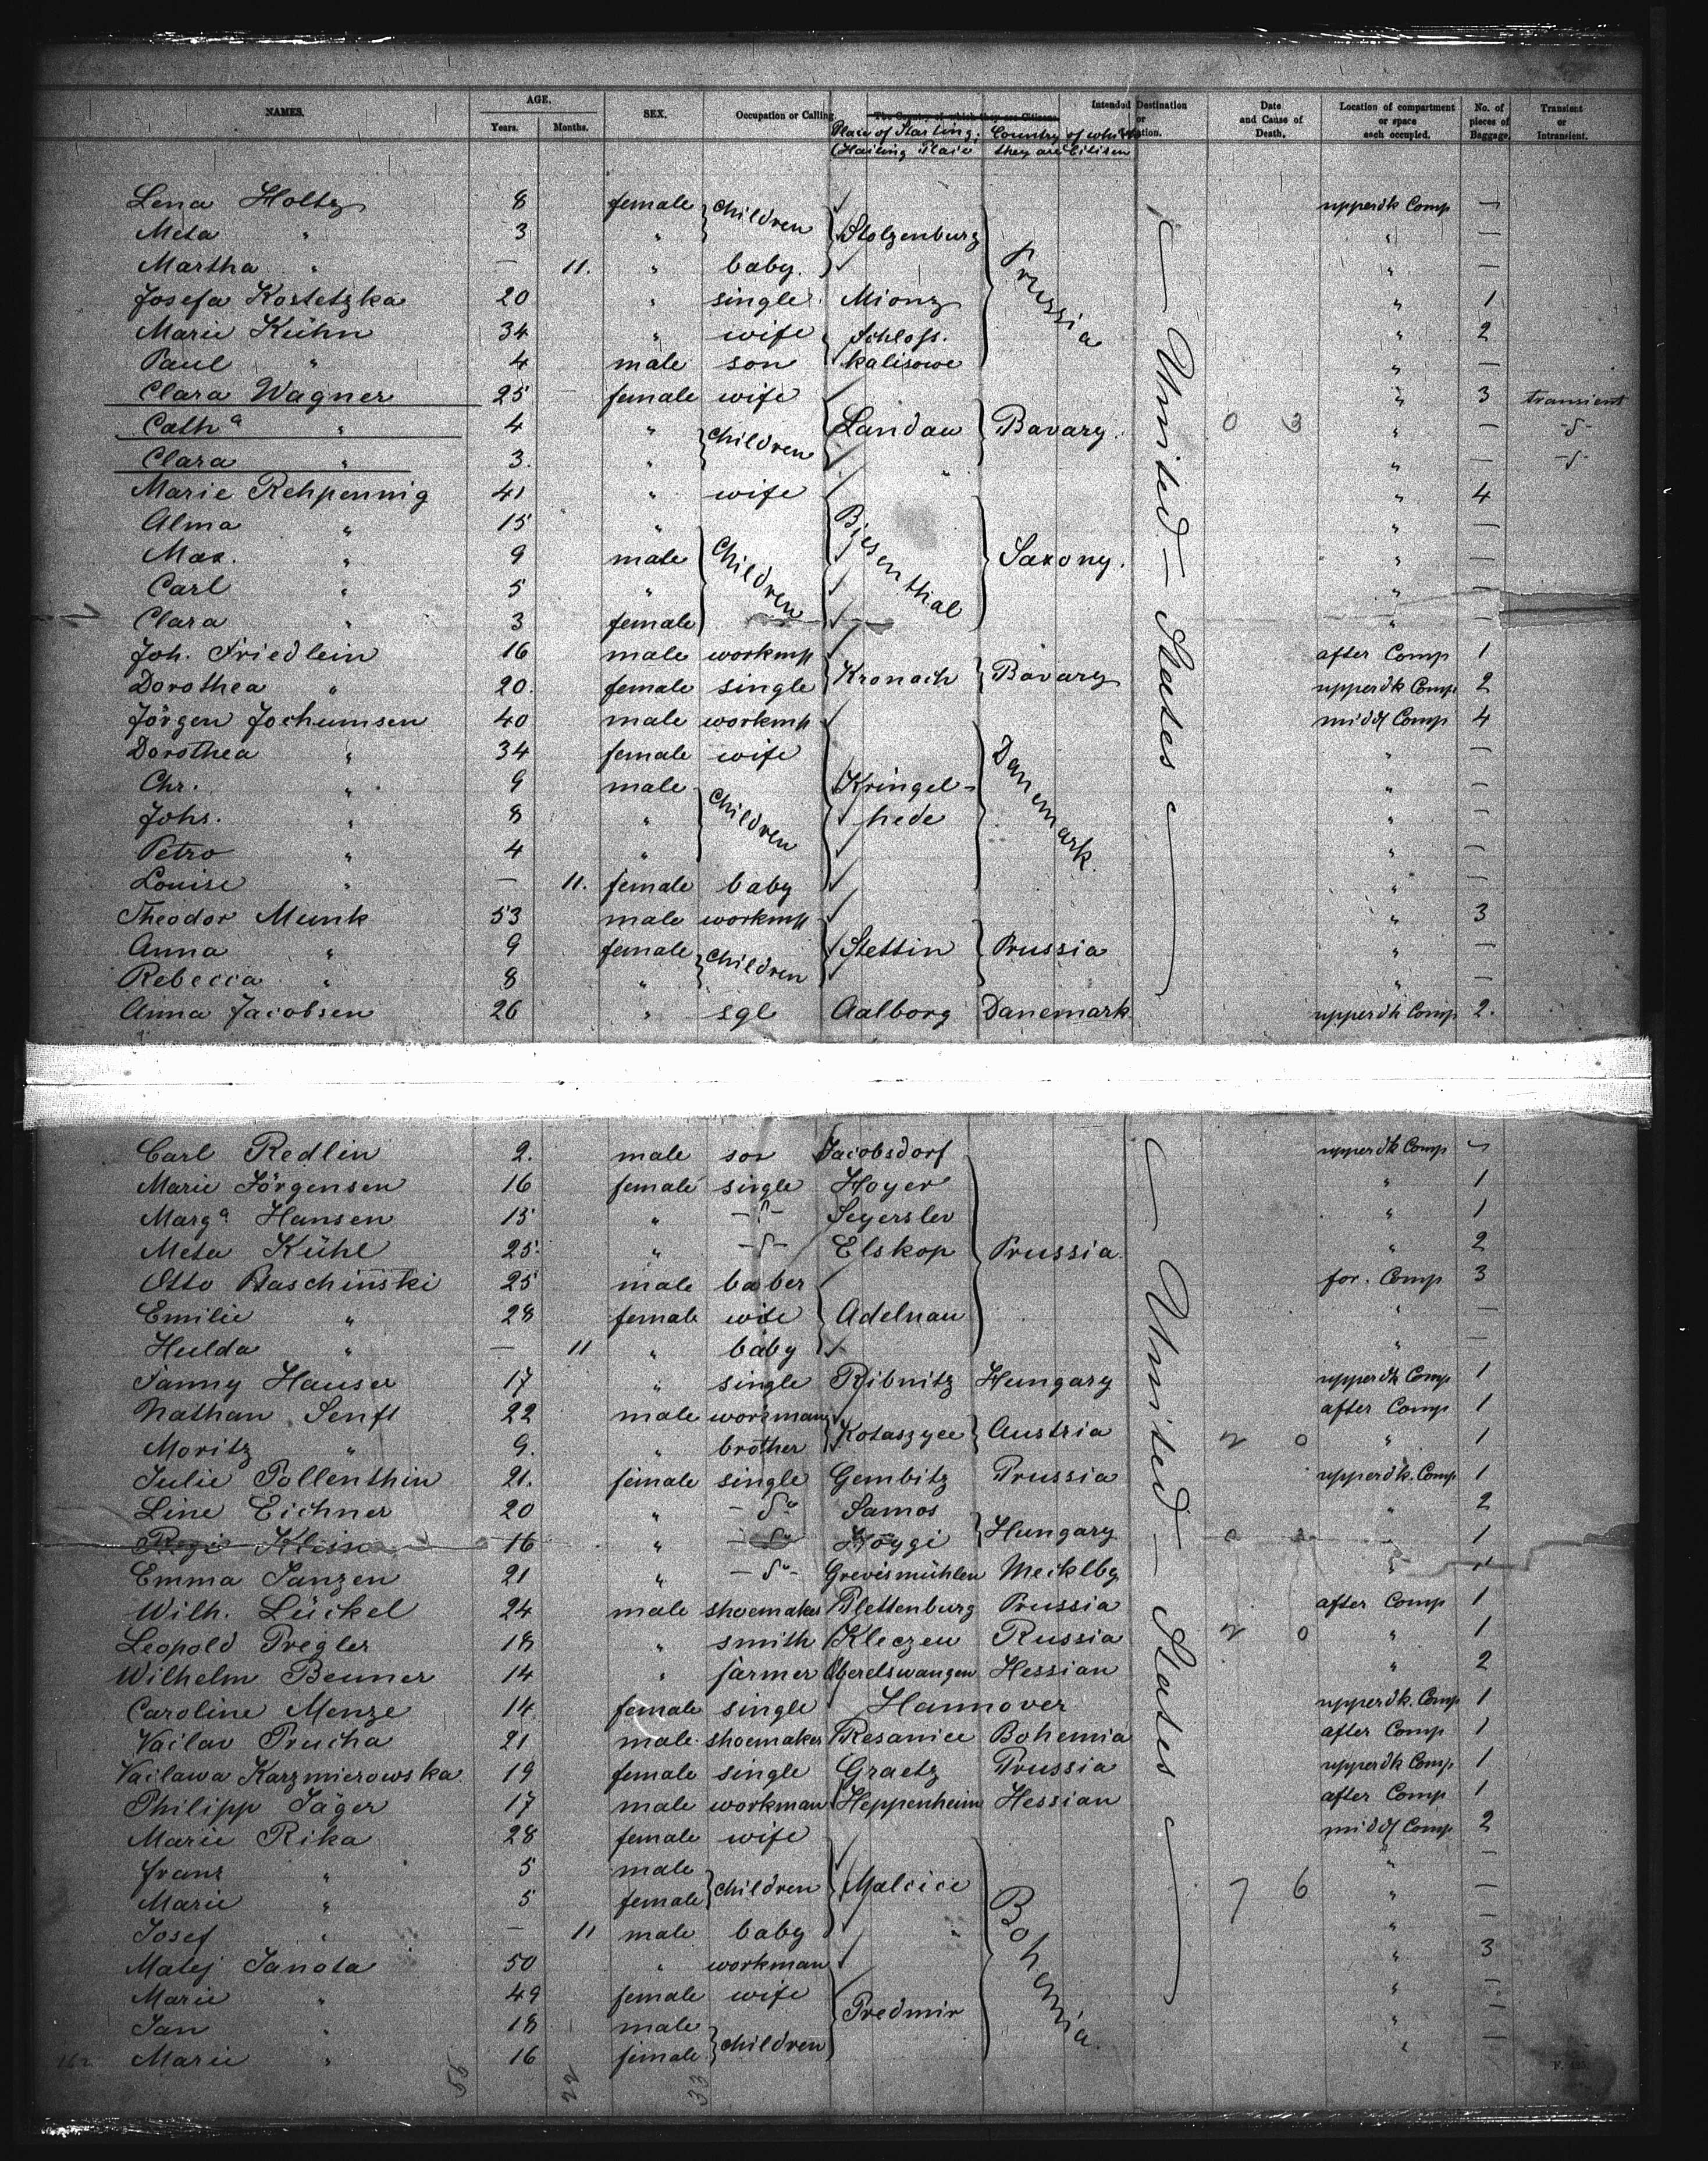 NAMES. AGE. Years. Months. SEX. Occupation or Calling. The Country of which they are Citizens. Intended Destination or Location. Date and Cause of Death. Location of compartment or space each occupied. No. of pieces of Baggage. Transient or Intransient.
Place of Starting. Country of which
(Hailing Place they are Citisen
Lena Holtz 8 female children Stolzenburg Prussia United States upperdk Comp —
Meta " 3 " " —
Martha " — 11. " baby. " —
Josefa Kostetzka 20 " single. Mionz " 1
Marie Kühn 34 " wife Schloss. " 2
Paul " 4 male son kalisowe " —
Clara Wagner 25 female wife Landau Bavary. " 3 transient
Cath a " 4 " children 0 3 " — -d-
Clara " 3. " " — -d-
Marie Rehpennig 41 " wife Bjesenthal Saxony. " 4
Alma " 15 " children " —
Max. " 9 male " —
Carl " 5 " " —
Clara " 3 female " —
Joh. Friedlein 16 male workmn Kronach Bavary after Comp 1
Dorothea " 20. female single upperdk Comp 2
Jörgen Jochumsen 40 male workmn Kringel- Danemark. midd Comp 4
Dorothea " 34 female wife hede " —
Chr. " 9 male children " —
Johs. " 8 " " —
Petro " 4 " " —
Louise " — 11. female baby " —
Theodor Munk 53 male workmn Stettin Prussia " 3
Anna " 9 female children " —
Rebecca " 8 " " —
Anna Jacobsen 26 " sgl Aalborg Danemark upperdk Comp 2.
Carl Redlin 2. male son Jacobsdorf Prussia. United States upperdk Comp —
Marie Jörgensen 16 female single Hoyer " 1
Marg a Hansen 15 " -d- Seyerslev " 1
Meta Kühl 25. " -d- Elskop " 2
Otto Baschinski 25 male baber Adelnau for. Comp 3
Emilie " 28 female wife " —
Hulda " — 11 " baby " —
Fanny Hauser 17 " single Ribnitz Hungary upperdk Comp 1
Nathan Senft 22 male workman Kotaszyce Austria after Comp 1
Moritz " 9. " brother 2 0 " 1
Julie Pollenthin 21. female single Gembitz Prussia upperdk. Comp 1
Line Eichner 20 " -d- Samos Hungary " 2
Regi 16 " -d- Höygi " 1
Emma Janzen 21 " -d- Grevismühlen Mecklbg "
Wilh. Lückel 24 male shoemaker Plettenburg Prussia after Comp 1
Leopold Pregler 18 " smith Kleczew Russia 2 0 " 1
Wilhelm Benner 14 " farmer Hessian " 2
Caroline Menze 14 female single Hannover upperdk. Comp 1
Vaclav Prucha 21 male shoemaker Resanice Bohemia after Comp 1
Vaclawa Karzmierowska 19 female single Graetz Prussia upperdk Comp. 1
Philipp Jäger 17 male workman Heppenheim Hessian after Comp 1
Marie Rika 28 female wife Malcice Bohemia. midd Comp 2
Franz " 5 male children " —
Marie " 5 female 7 6 " —
Josef " — 11 male baby " —
Matej Janota 50 " workman Predmir " 3
Marie " 49 female wife " —
Jan " 18 male children " —
Marie " 16 female " —
55 22 33